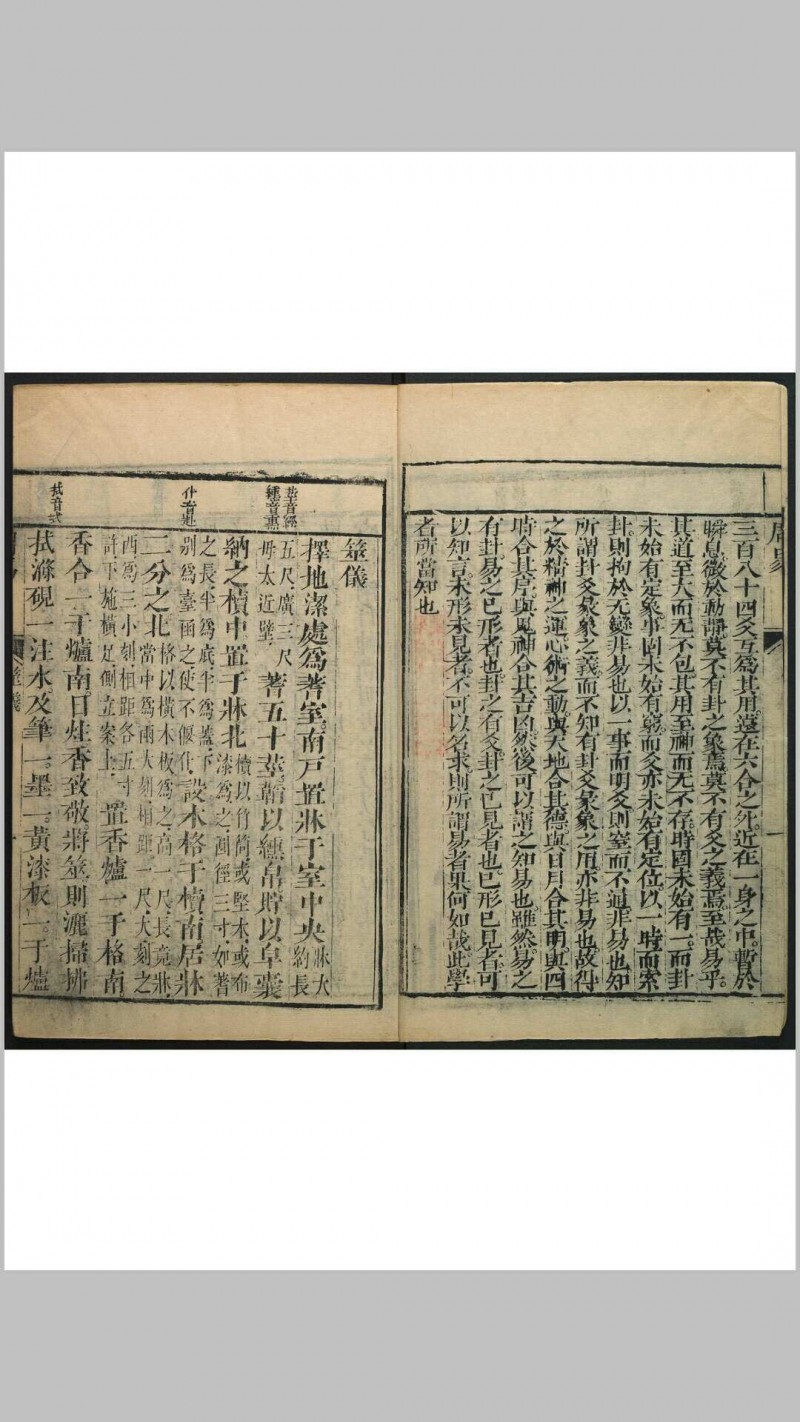 周易
三百八十四爻互爲其用遠在六合之外近在一身之中暫於
瞬息微於動靜莫不有卦之象焉莫不有爻之義焉至哉易乎
其道至大而无不包其用至神而无不存時固未始有一而卦
未始有定象事固未始有窮而爻亦未始有定位以一時而索
卦則拘於无變非易也以一事而明爻則窒而不通非易也知
所謂卦爻彖象之義而不知有卦爻彖象之用亦非易也故得
之於精神之運心術之動與天地合其德與日月合其明與四
時合其序與鬼神合其吉凶然後可以謂之知易也雖然易之
有卦易之已形者也卦之有爻卦之已見者也已形已見者可
以知言未形未見者不可以名求則所謂易者果何如哉此學
者所當知也
筮儀
擇地潔處爲蓍室南戶置牀于室中央牀大約長
五尺廣三尺毋太近壁蓍五十莖韜以纁帛貯以皁囊
納之櫝中置于牀北櫝以竹筒或堅木或布漆爲之圓徑三寸如蓍
之長半爲底半爲蓋下别爲臺函之使不偃仆設木格于櫝南居牀
二分之北格以橫木板爲之高一尺長竟牀當中爲兩大刻相距一尺大刻之
西爲三小刻相距各五寸許下施橫足側立案上置香爐一于格南
香合一于爐南日炷香致敬將筮則灑掃拂
拭滌硯一注水及筆一墨一黄漆板一于爐
莖音經
纁音熏
仆音赴
拭音式
筮儀